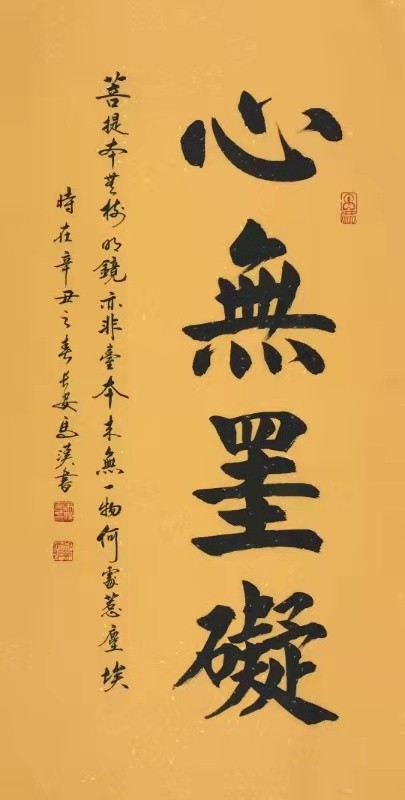 心無罣礙
菩提本無樹明鏡亦非臺本来無一物何處惹塵埃
時在辛丑之春長安馬漢書